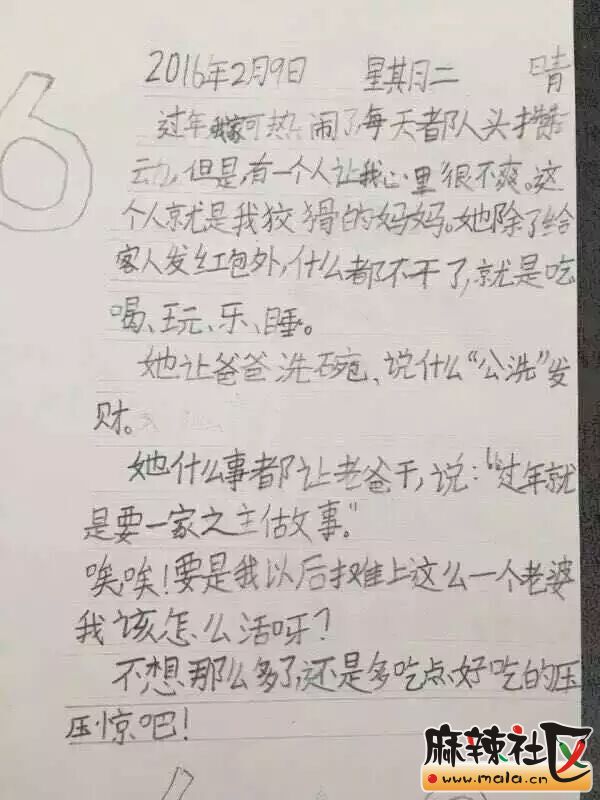 6
2016年2月9日 星期二 晴
过年我家可热闹了,每天都人头攒
动,但是,有一个人让我心里很不爽。这
个人就是我狡猾的妈妈。她除了给
客人发红包外,什么都不干了,就是吃
喝、玩、乐、睡。
她让爸爸洗碗、说什么“公洗”发
财。
她什么事都让老爸干,说:“过年就
是要一家之主做故事。”
唉,唉!要是我以后摊上这么一个老婆
我该怎么活呀?
不想那么多了,还是多吃点好吃的压
压惊吧!
麻辣社区
www.mala.cn